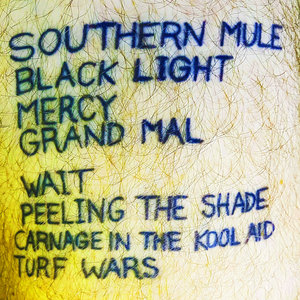 SOUTHERN MULE
BLACK LIGHT
MERCY
GRAND MAL
WAIT
PEELING THE SHADE
CARNAGE IN THE KOOL AID
TURF WARS